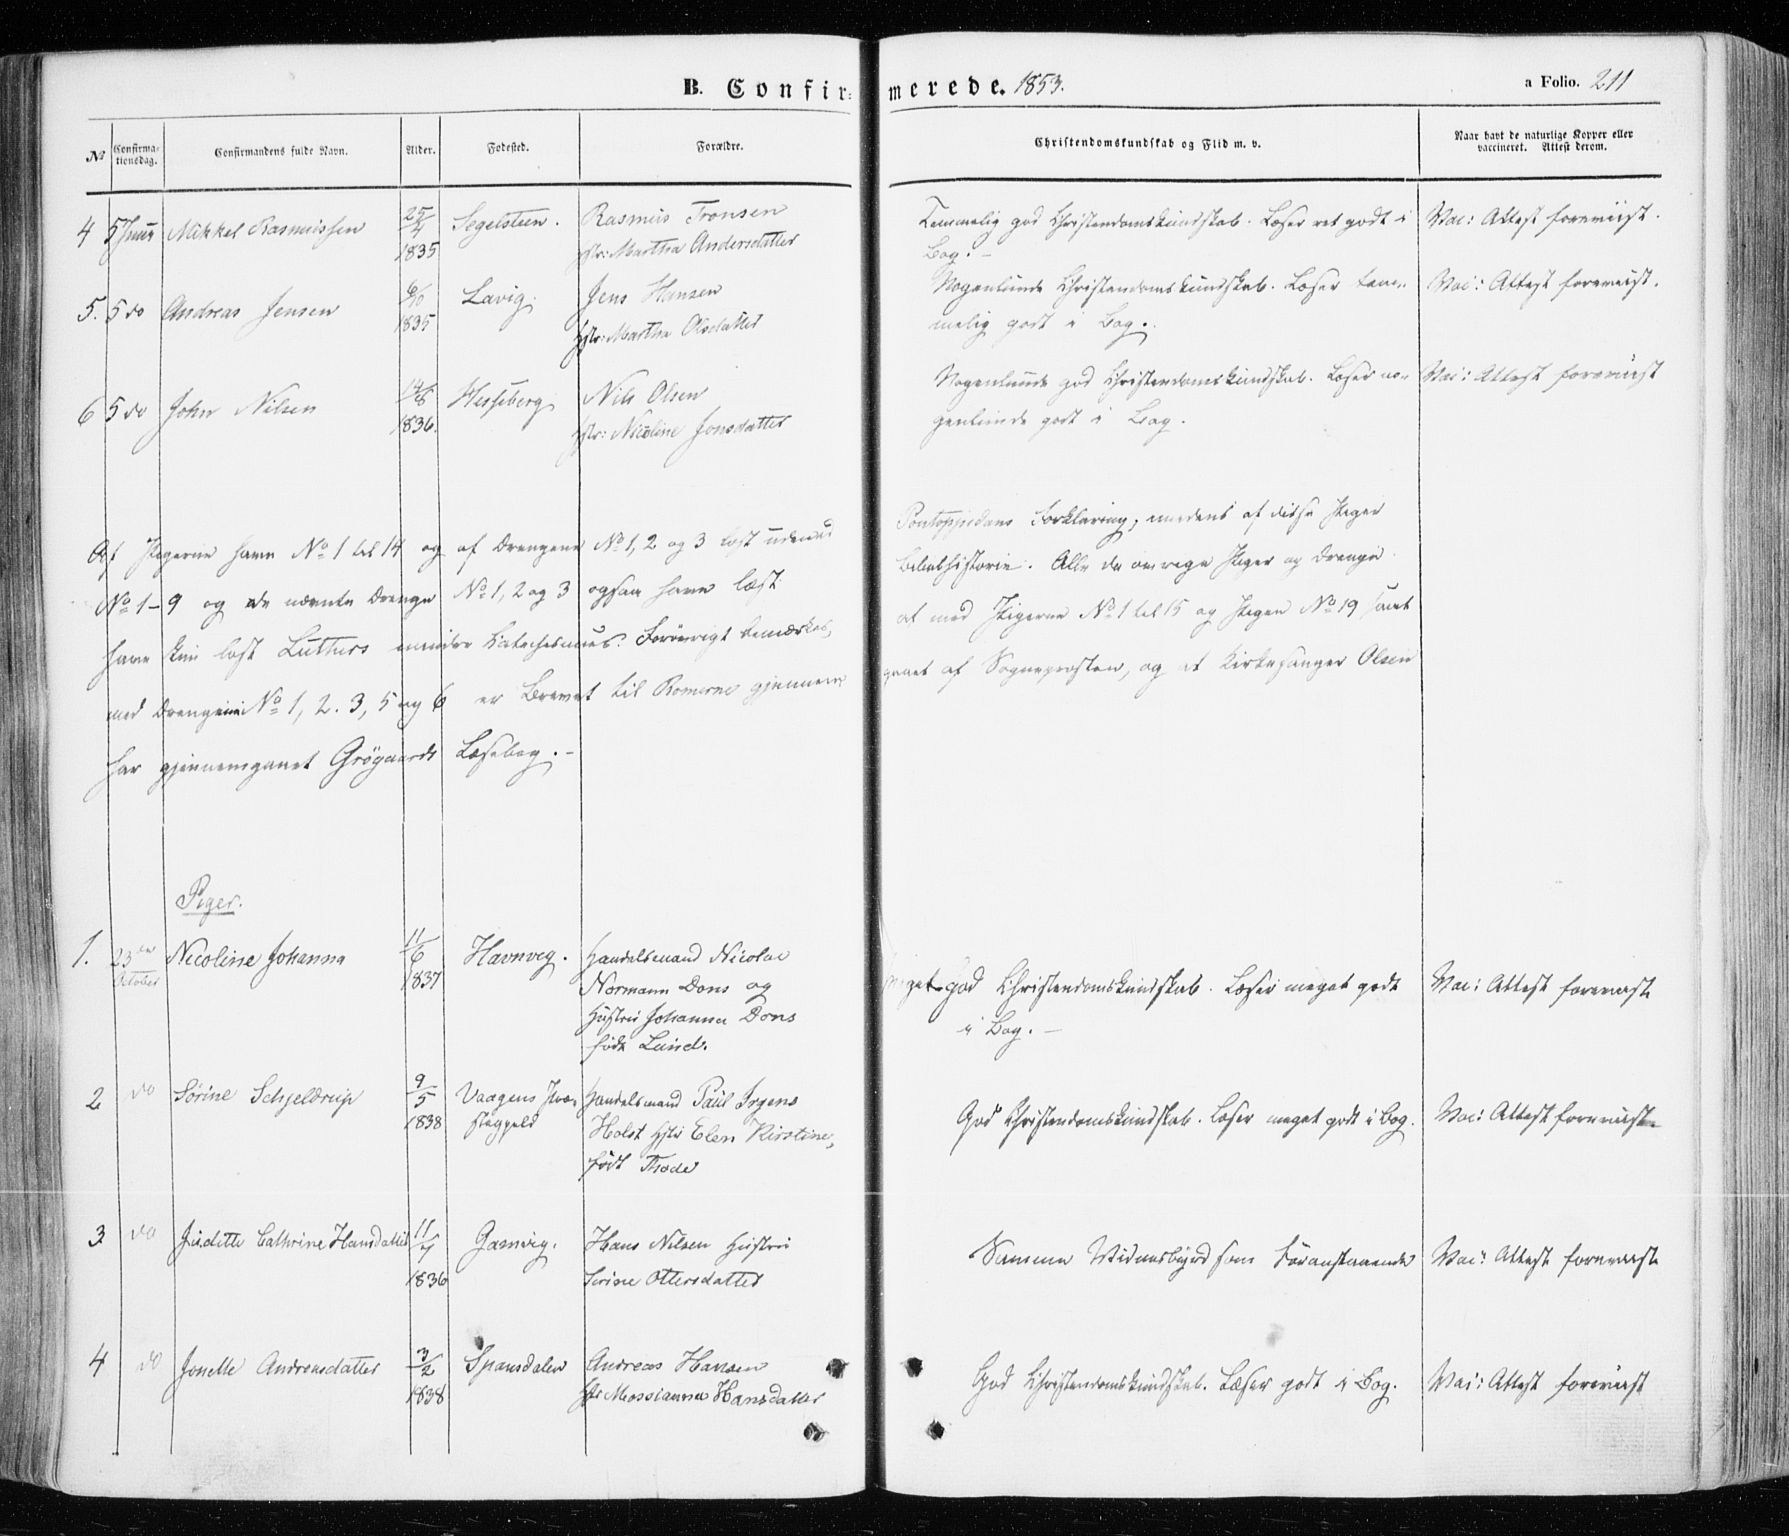 B. Confirmerede. 1853.
a Folio. 211
No
Confirmationsdag.
Confirmandens fulde Navn.
Alder.
Fødested.
Forældre.
Christendomskundskab og Flid m. v.
Naar havt de naturlige Kopper eller vaccineret. Attest derom.
4 5 Juni Mikkel Rasmussen 25/4 1835 Segelsteen. Rasmus Tronsen
Hstr: Martha Andersdatter
Temmelig god Christendomskundskab. Læser ret godt i Bog. –
Vac: Attest foreviist.
5. 5 do Andreas Jensen 6/10 1835 Lavig. Jens Hansen
Hstr: Martha Olsdatter
Nogenlunde Christendomskundskab. Læser temmelig godt i Bog.
Vac: Attest foreviist.
6 5 do John Nilsen 14/8 1836. Hesseberg Nils Olsen
Hstr: Nicoline Jonsdatter
Nogenlunde god Christendomskundskab. Læser nogenlunde godt i Bog.
Vac: Attest foreviist
Af Pigerne have No 1 til 14 og af Drengene No 1, 2 og 3 læst udenad Pontoppidans Forklaring, medens af disse Piger
No 1–9 og de nævnte Drenge No 1, 2 og 3 ogsaa have læst Bibelhistorie. Alle de øvrige Piger og Drenge
have kun læst Luthers mindre Katechismus. Forøvrigt bemærkes, at med Pigerne No 1 til 15 og Pigen No 19 samt
med Drengene No 1, 2. 3, 5 og 6 er Brevet til Romerne gjennemgaaet af Sogneprosten, og at Kirkesanger Olsen
har gjennemgaaet Grøgaards Læsebog. –
Piger.
1. 23de October Nicoline Johanna 11/6 1837 Havnvig. Handelsmand Nicolai
Normann Dons og
Hustru Johanna Dons
født Lund.
Meget god Christendomskundskab. Læser meget godt
i Bog. –
Vac: Attest foreviist
2 do Sørine Schjeldrup 9/5 1838 Vaagens Præstegjeld Handelsmand Paul Irgens
Holst Hstr Elen Kirstine,
født Thode
God Christendomskundskab. Læser meget godt i Bog.
Vac: Attest foreviist
3 do Juditte Cathrine Hansdatter 11/4 1836 Gamvig. Hans Nilsen Hustru
Serine Ottersdatter
Samme Vidnesbyrd som Foranstaaende
Vac: Attest foreviist
4 do Jonette Andreasdatter 3/2 1838 Spansdalen Andreas Hansen
Hstr Mossianna Hansdatter
God Christendomskundskab. Læser godt i Bog.
Vac: Attest foreviist